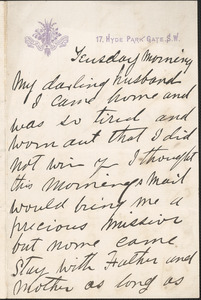 17, HYDE PARK GATE, S.W.
Tuesday Morning
My darling husband
I came home and
was so tired and
worn out that I did
not win y I thought
this Morning's Mail
would bring me a
precious missive
but none came
Stay with Father and
Mother as long as